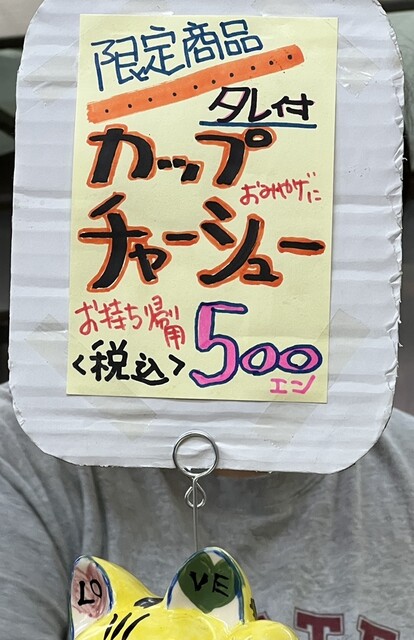 限定商品
タレ付
カップ
おみやげに
チャーシュー
お持ち帰り用
<税込> 500
エン
LO VE